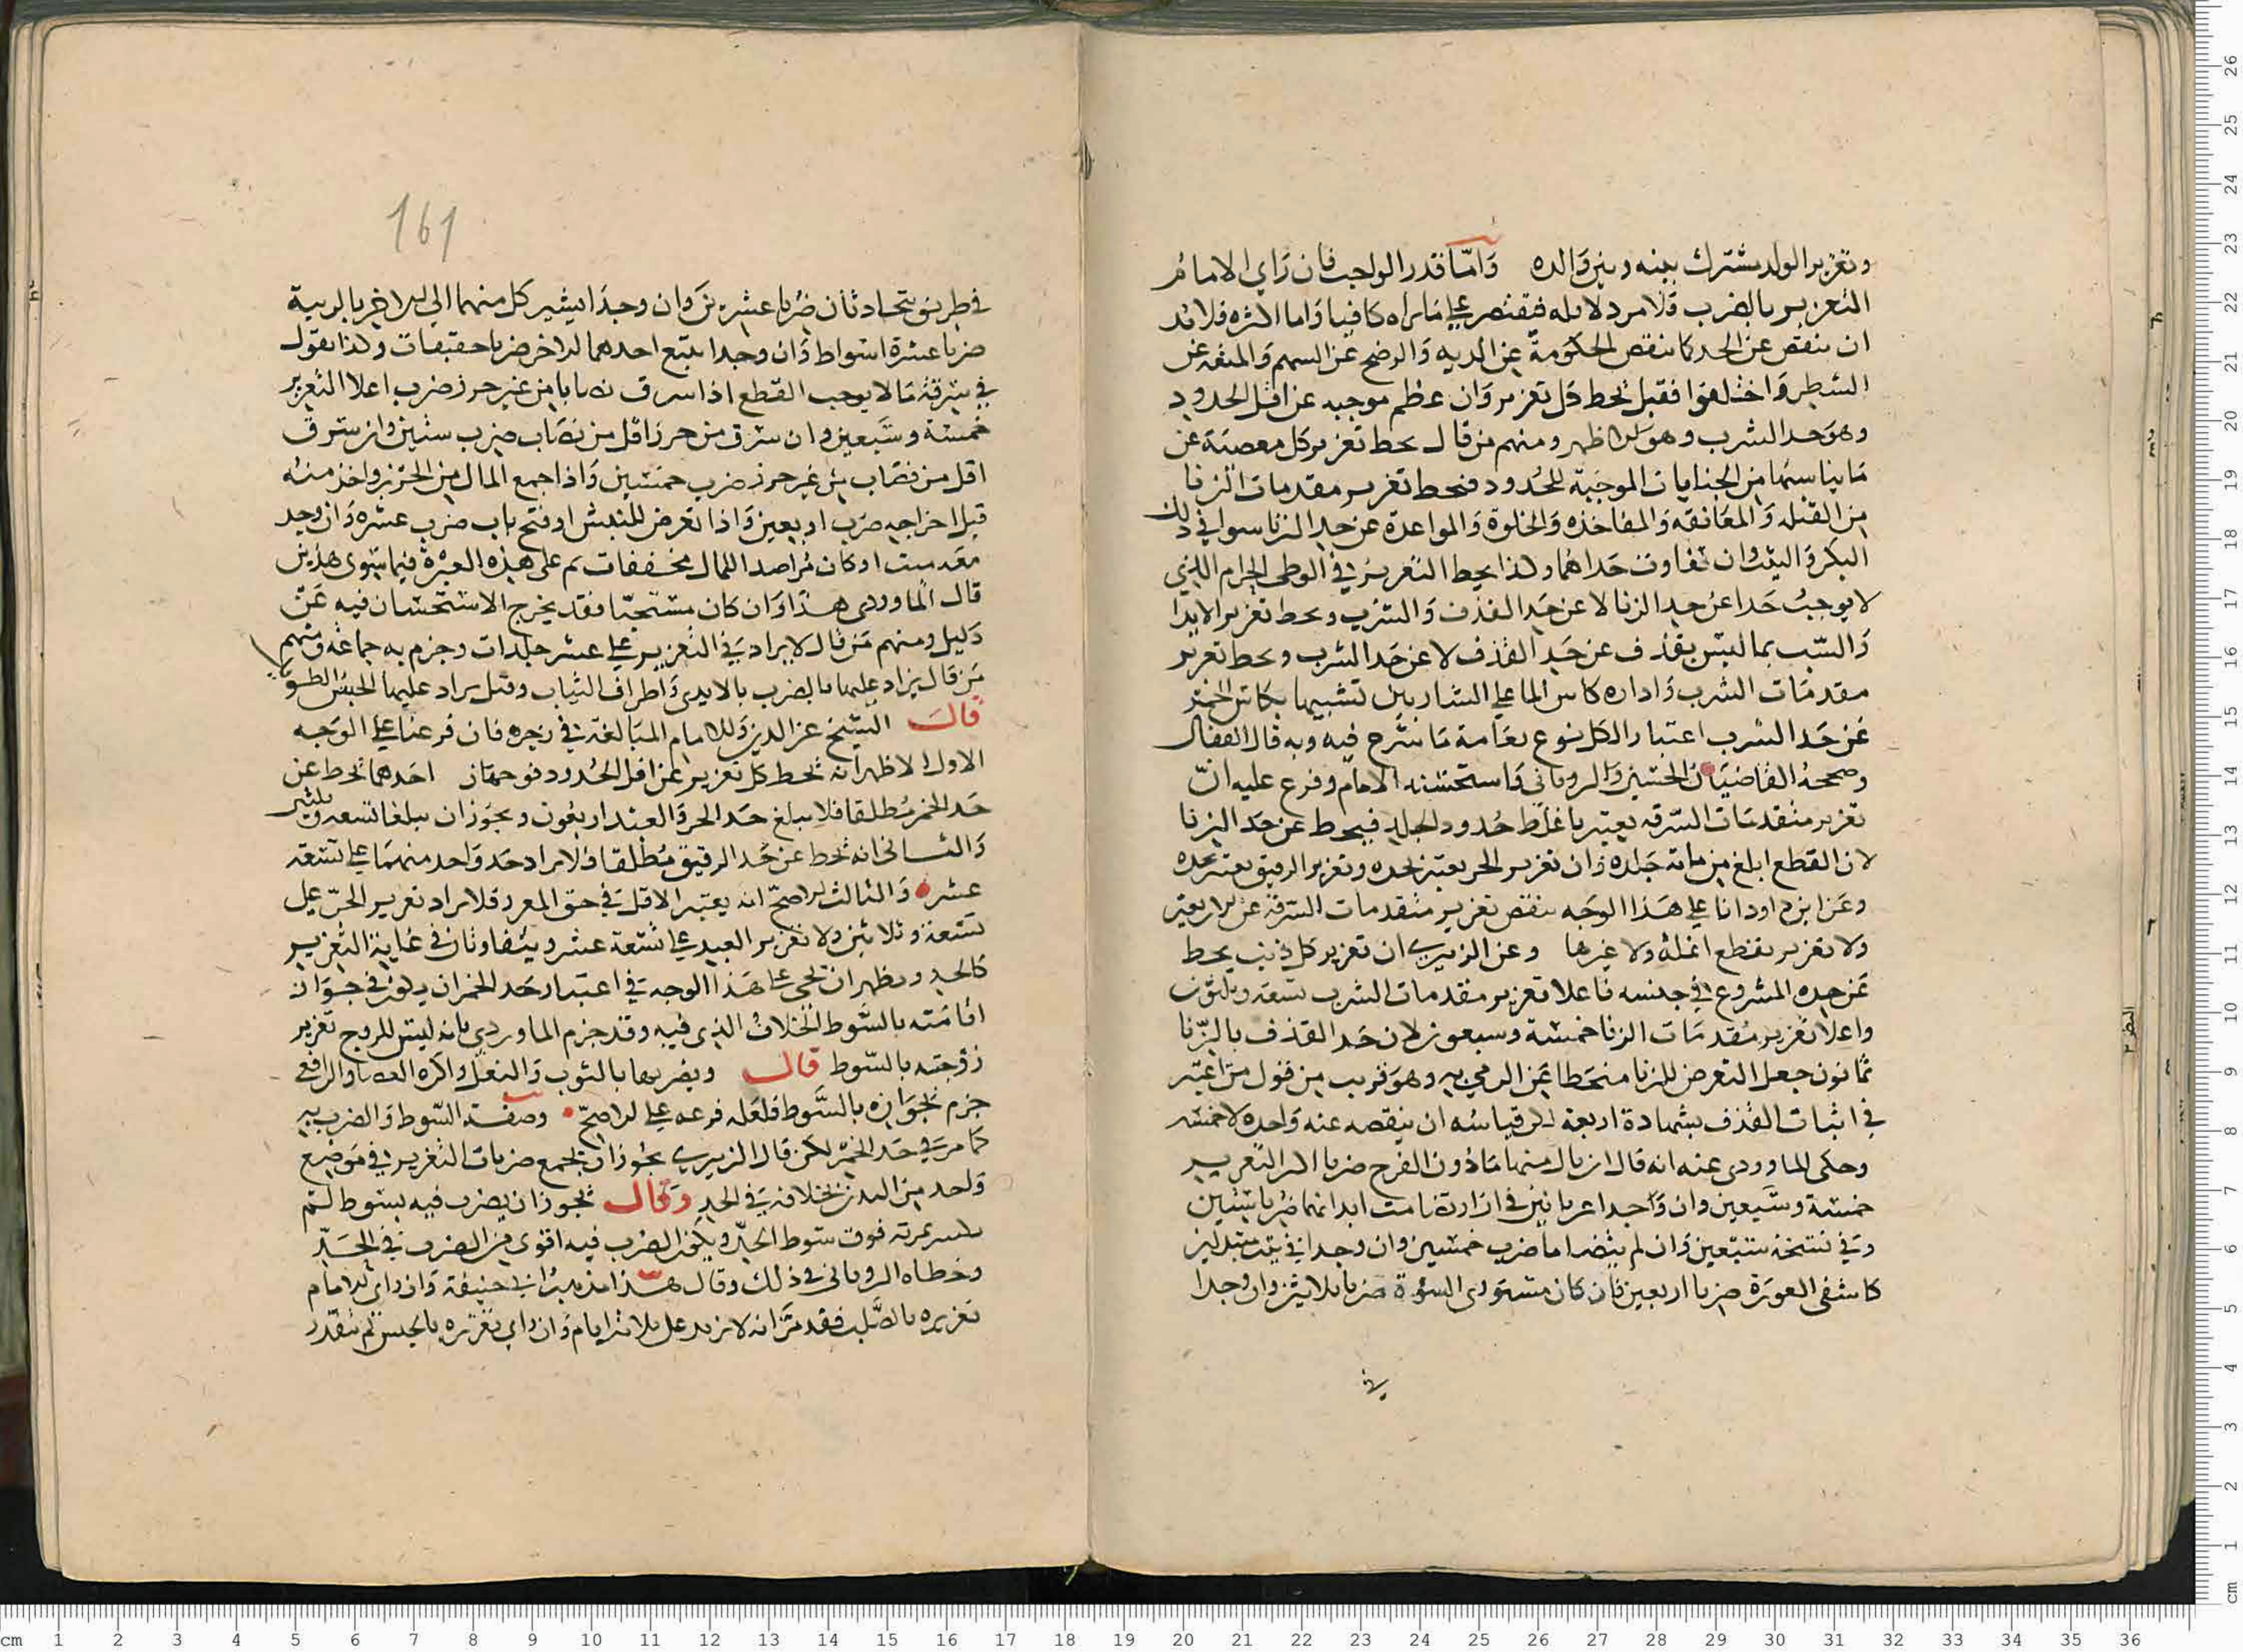 وتعزير الولد مشترك بينه وبين والده واما قدر الواجب فان راي الامام
التعزير بالضرب فلا مرد لاقله فيقتصر على ما يراه كافيا واما اكثره فلا بد
ان ينقص عن الحد كما ينقص الحكومة عن الديه والرضخ عن السهم والمتعه عن
الشطر واختلفوا فقيل يحط كل تعزير وان عظم موجبه عن اقل الحدود
وهو حد الشرب وهو الاظهر ومنهم من قال يحط تعزير كل معصية عن
ما يناسبها من الجنايات الموجبة للحدود فيحط تعزير مقدمات الزنا
من القبله والمعانقه والمفاخذه والخلوة والمواعدة عن حد الزنا سوا في ذلك
البكر والثيب وان تفاوت حداهما وكذا يحط التعزير في الوطي الحرام الذي
لا يوجب حدا عن حد الزنا لا عن حد القذف والشرب ويحط تعزير الايذا
والسب بما ليس بقذف عن حد القذف لا عن حد الشرب ويحط تعزير
مقدمات الشرب واداره كاس الما على الشاربين تشبيها بكاس الخمر
عن حد الشرب اعتبارا لكل نوع بغاية ما شرع فيه وبه قال القفال
وصححه القاضيان الحسين والروياني واستحسنه الامام وفرع عليه ان
تعزير متقدمات السرقه يعتبر باغلظ حدود الجلد فيحط عن حد الزنا
لان القطع ابلغ من مائة جلده وان تعزير الحر يعتبر بحده وتعزير الرقيق يعتبر بحده
وعن ابن داود انا على هذا الوجه ننقص تعزير متقدمات السرقة عن اربعين
ولا تعزير بقطع انملة ولا غيرها وعن الزبيري ان تعزير كل ذنب يحط
عن حده المشروع في جنسه فاعلا تعزير مقدمات الشرب تسعه وثلثون
واعلا تعزير مقدمات الزنا خمسة وسبعون لان حد القذف بالزنا
ثمانون جعل التعرض للزنا منحطا عن الرمي به وهو قريب من قول من اعتبر
في اثبات القذف بشهادة اربعة لكن قياسه ان ينقصه عنه واحده لا خمسه
وحكى الماوردي عنه انه قال ان نال منها ما دون الفرج ضربا اكثر التعزير
خمسة وسبعين وان وجدا عريانين في ازار قد تضامت ابدانهما ضربا ستين
وفي نسخة سبعين وان لم يتضاما ضرب خمسين وان وجدا في بيت متبذلين
كاشفي العورة ضربا اربعين فان كان مستوري السوة ضربا ثلاثين وان وجدا
في
161
في طريق يتحادثان ضربا عشرين وان وجدا يشير كل منهما الى الاخر بالريبة
ضربا عشرة اسواط وان وجدا يتبع احدهما الاخر ضربا خفيفات وكذا نقول
في سرقة ما لا يوجب القطع اذا سرق نصابا من غير حرز ضرب اعلا التعزير
خمسة وسبعين وان سرق من حرز اقل من نصاب ضرب ستين وان سرق
اقل من نصاب من غير حرز ضرب خمسين واذا جمع المال من الحرز واخذ منه
قبل اخراجه ضرب اربعين واذا تعرض للنبش او فتح باب ضرب عشره وان وجد
معه مبرد او كان مراصدا للمال بخففات ثم على هذه العبرة فيما سوى هذين
قال الماوردي هذا وان كان مستحبا فقد يخرج الاستحسان فيه عن
دليل ومنهم من قال لا يزاد في التعزير على عشر جلدات وجزم به جماعه ومنهم
من قال يزاد عليها بالضرب بالايدي واطراف الثياب وقيل يزاد عليها الحبس الطويل
قال الشيخ عز الدين وللامام المبالغة في زجره فان فرعنا على الوجه
الاول الاظهر انه يحط كل تعزير عن اقل الحدود فوجهان احدهما يحط عن
حد الخمر مطلقا فلا يبلغ حد الحر والعبد اربعون ويجوز ان يبلغا تسعه وثلثين
والثاني انه يحط عن حد الرقيق مطلقا فلا يزاد حد واحد منهما على تسعة
عشره والثالث الاصح انه يعتبر الاقل في حق المعزر فلا يزاد تعزير الحر على
تسعة وثلاثين ولا تعزير العبد على تسعة عشر ويتفاوتان في غاية التعزير
كالحد ويظهر ان يجي على هذا الوجه في اعتبار حد الخمر ان يكون في جواز
اقامته بالسوط الخلاف الذي فيه وقد جزم الماوردي بانه ليس للزوج تعزير
زوجته بالسوط قال ويضربها بالثوب والنعل واكره العصا والرافعي
جزم بجوازه بالسوط فلعله فرعه على الاصح وصفة السوط والضرب به
كما مر في حد الخمر لكن قال الزبيري يجوز ان يجمع ضربات التعزير في موضع
واحد من البدن بخلافه في الحد وقال يجوز ان يضرب فيه بسوط لم
تكسر ثمرته فوق سوط الحد ويكون الضرب فيه اقوى من الضرب في الحد
وخطاه الروياني في ذلك وقال هذا مذهب ابي حنيفة وان راي الامام
تعزيره بالصلب فقد مر انه لا يزيد على ثلاثة ايام وان راي تعزيره بالحبس لم يتقدر